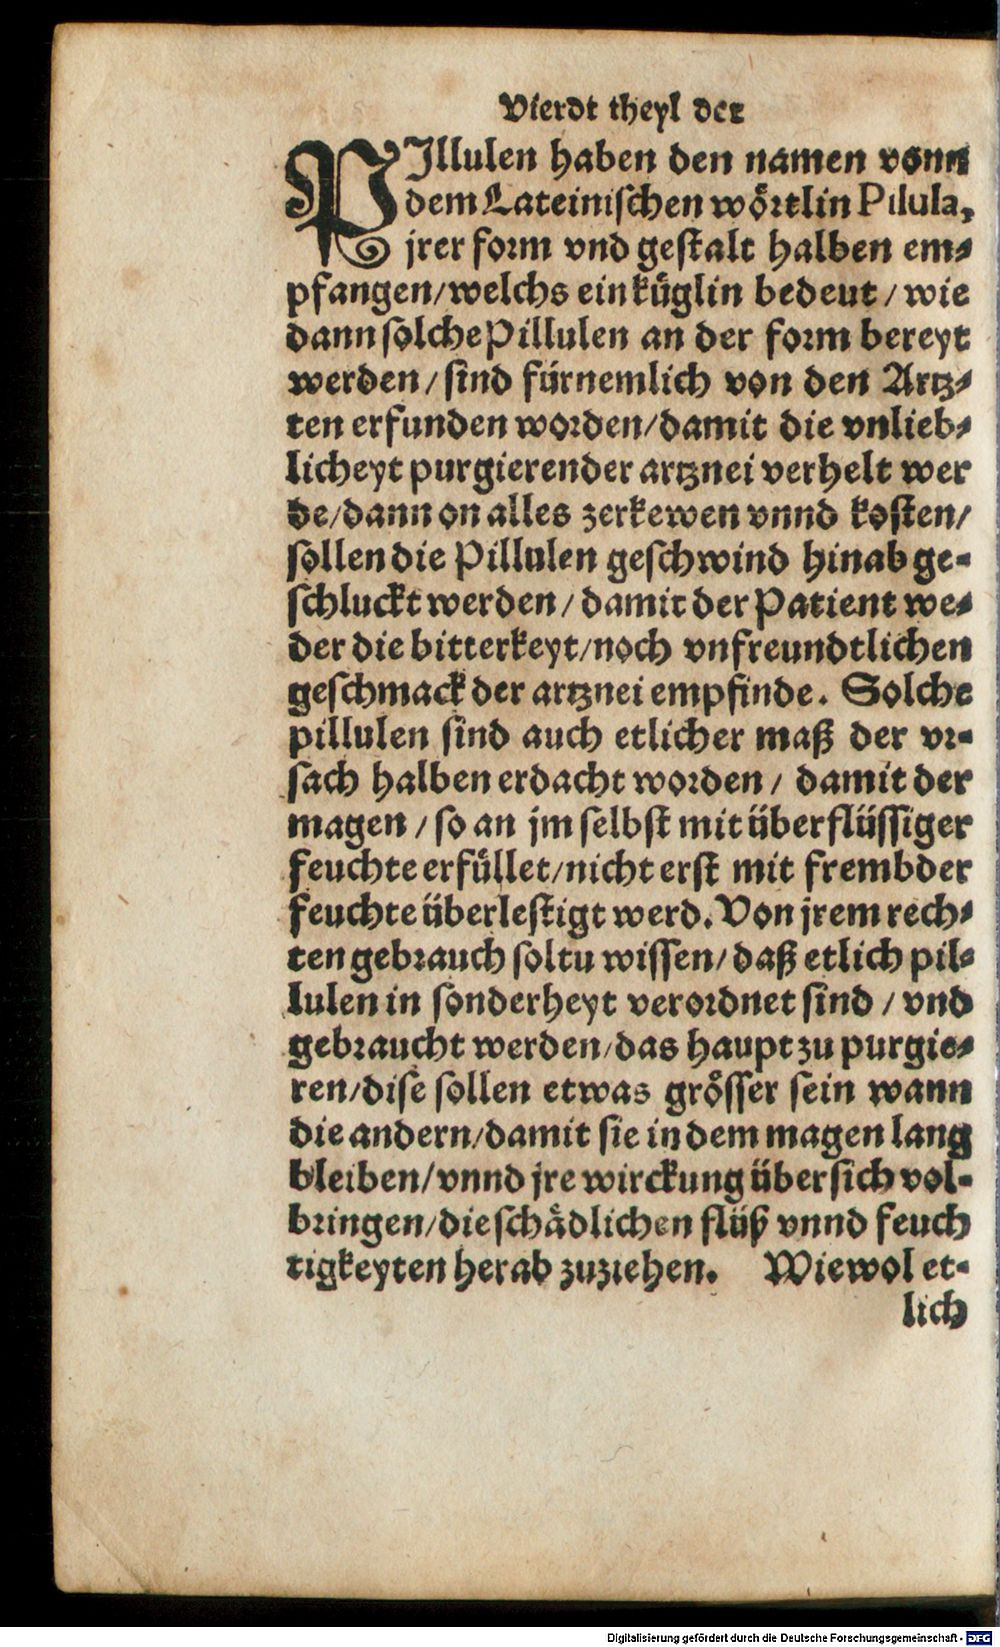 Vierdt theyl der
PIllulen haben den namen vonn
dem Lateinischen wörtlin Pilula,
jrer form vnd gestalt halben em⸗
pfangen/welchs ein küglin bedeut/ wie
dann solche Pillulen an der form bereyt
werden/ sind fürnemlich von den Artz⸗
ten erfunden worden/damit die vnlieb⸗
licheyt purgierender artznei verhelt wer
de/dann on alles zerkewen vnnd kosten/
sollen die Pillulen geschwind hinab ge⸗
schluckt werden/ damit der Patient we⸗
der die bitterkeyt/noch vnfreundtlichen
geschmack der artznei empfinde. Solche
pillulen sind auch etlicher maß der vr⸗
sach halben erdacht worden/ damit der
magen/ so an jm selbst mit überflüssiger
feuchte erfüllet/nicht erst mit frembder
feuchte überlestigt werd. Von jrem rech⸗
ten gebrauch soltu wissen/ daß etlich pil⸗
lulen in sonderheyt verordnet sind/ vnd
gebraucht werden/das haupt zu purgie⸗
ren/dise sollen etwas grösser sein wann
die andern/damit sie in dem magen lang
bleiben/vnnd jre wirckung über sich vol⸗
bringen/die schädlichen flüß vnnd feuch
tigkeyten herab zuziehen. Wiewol et⸗
lich
Digitalisierung gefördert durch die Deutsche Forschungsgemeinschaft - DFG